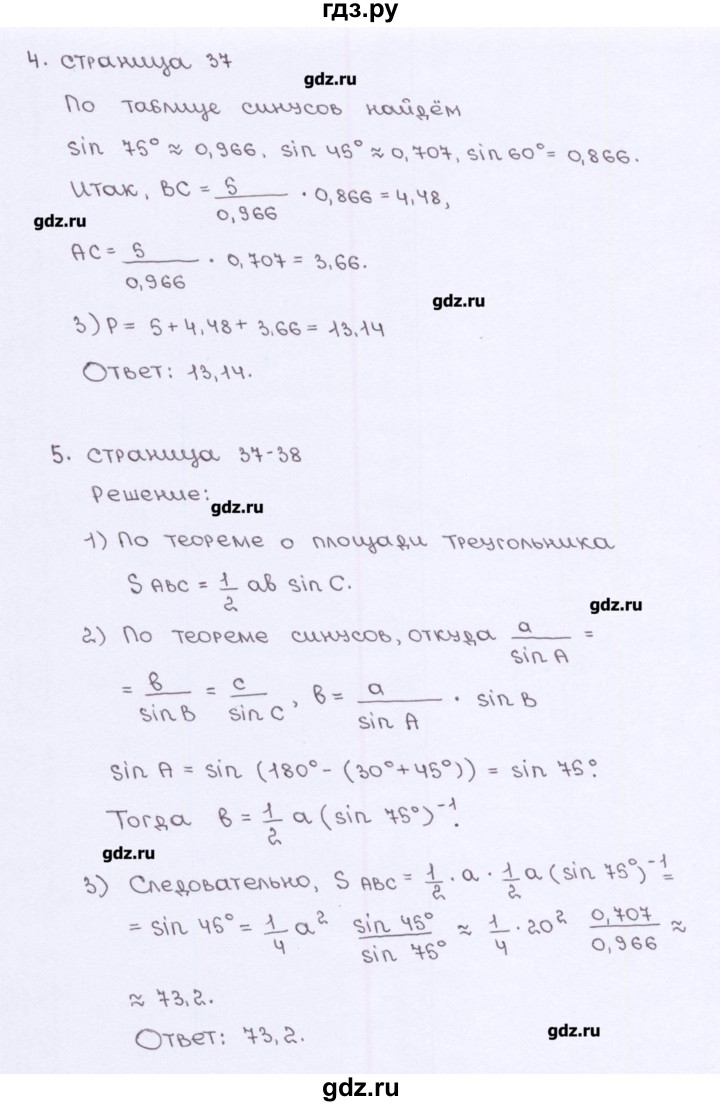 гдз.ру
4. страница 37
gdz.ru
По таблице синусов найдём
sin 75° ≈ 0,966, sin 45° ≈ 0,707, sin 60° = 0,866.
Итак, BC = 5/0,966 · 0,866 = 4,48,
gdz.ru
AC = 5/0,966 · 0,707 = 3,66.
gdz.ru
3) P = 5 + 4,48 + 3,66 = 13,14
Ответ: 13,14.
5. страница 37-38
Решение:
gdz.ru
1) По теореме о площади треугольника
S ABC = 1/2 ab sin C.
gdz.ru
2) По теореме синусов, откуда a/sin A =
= b/sin B = c/sin C, b = a/sin A · sin B
sin A = sin (180° - (30° + 45°)) = sin 75°.
Тогда b = 1/2 a (sin 75°)⁻¹.
gdz.ru
3) Следовательно, S ABC = 1/2 · a · 1/2 a (sin 75°)⁻¹ =
= sin 45° = 1/4 a² sin 45°/sin 75° ≈ 1/4 · 20² 0,707/0,966 ≈
≈ 73,2.
Ответ: 73,2.
gdz.ru
gdz.ru